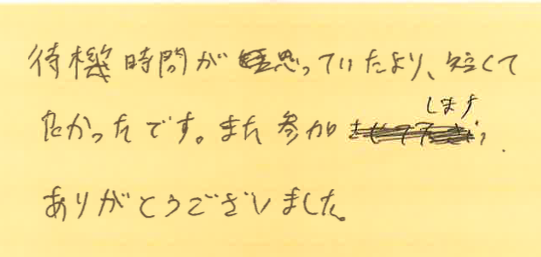 待機時間が思っていたより、短くて
良かったです。また参加します
ありがとうございました。